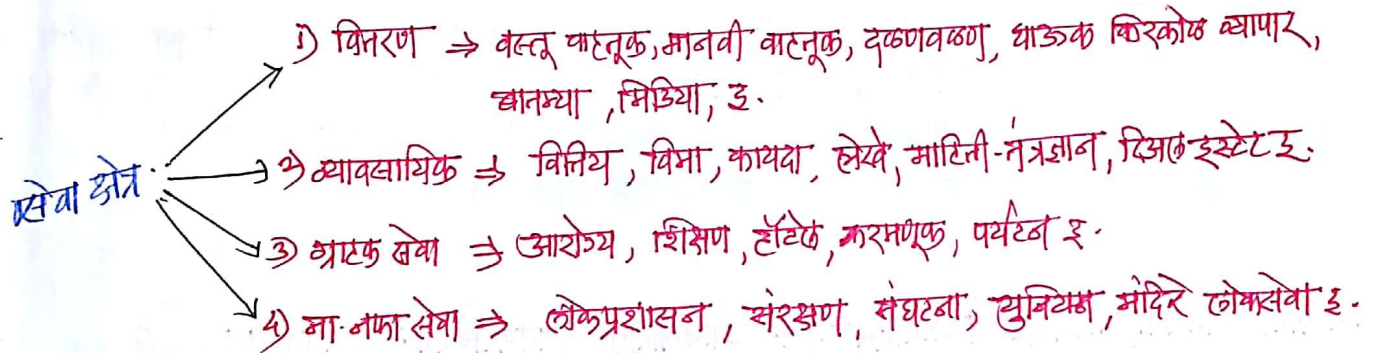 १) वितरण ⇒ वस्तू वाहतूक, मानवी वाहतूक, दळणवळण, घाऊक किरकोळ व्यापार,
बातम्या, मिडिया, इ.
सेवा क्षेत्र
२) व्यावसायिक ⇒ वित्तिय, विमा, कायदा, लेखे, माहिती-तंत्रज्ञान, रिअल इस्टेट इ.
३) ग्राहक सेवा ⇒ आरोग्य, शिक्षण, हॉटेल, करमणूक, पर्यटन इ.
४) ना-नफा सेवा ⇒ लोकप्रशासन, संरक्षण, संघटना, युनियन, मंदिरे लोकसेवा इ.